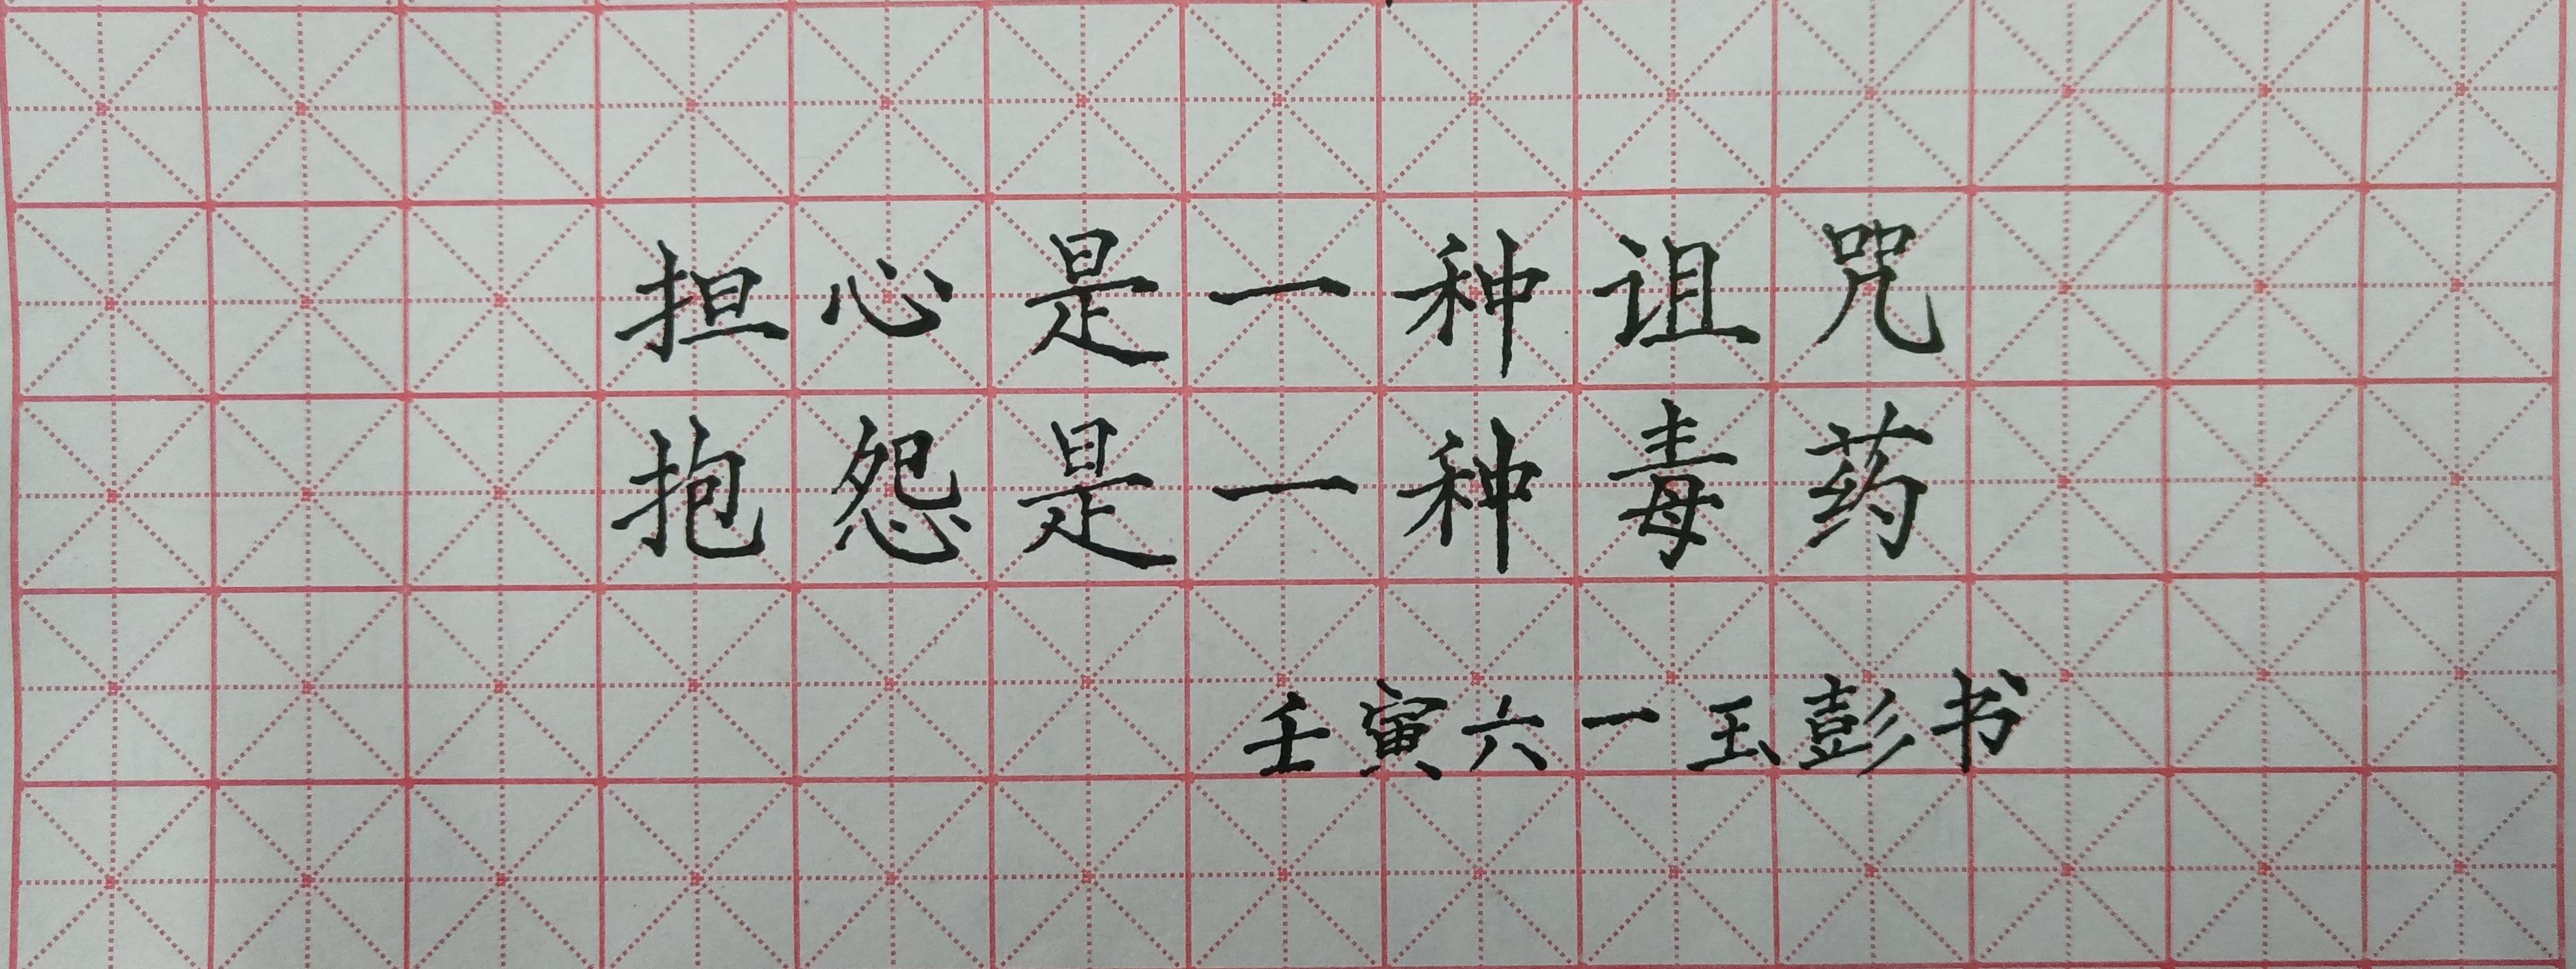 担心是一种诅咒
抱怨是一种毒药
壬寅六一玉彭书